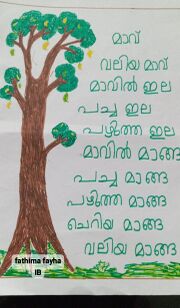 മാവ്
വലിയ മാവ്
മാവിൽ ഇല
പച്ച ഇല
പഴുത്ത ഇല
മാവിൽ മാങ്ങ
പച്ച മാങ്ങ
പഴുത്ത മാങ്ങ
ചെറിയ മാങ്ങ
വലിയ മാങ്ങ
fathima fayha
IB